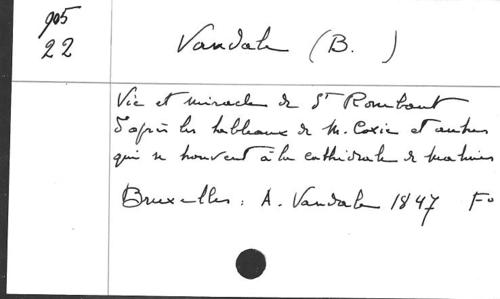 905
22
Vandale (B. )
Vie et miracles de St Rombaut
d'après les tableaux de M. Coxie et autres
qui se trouvent à la cathédrale de Malines
Bruxelles : A. Vandale 1847 Fo